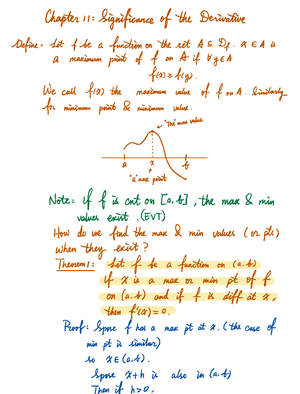 Chapter 11: Significance of the Derivative
Define: Let f be a function on the set A ⊆ Df. x ∈ A is
a maximum point of f on A if ∀y∈A
f(x) ≥ f(y).
We call f(x) the maximum value of f on A. Similarly
for minimum point & minimum value.
"The" max value
a x b
"a" max point
Note: if f is cnt on [a,b], the max & min
values exist. (EVT)
How do we find the max & min values (or pts)
When they exist?
Theorem 1: Let f be a function on (a,b)
if x is a max or min pt of f
on (a,b) and if f is diff at x,
then f'(x)=0.
Proof: Spose f has a max pt at x. (the case of
min pt is similar)
so x∈(a,b).
Spose x+h is also in (a,b)
Then if h>0,